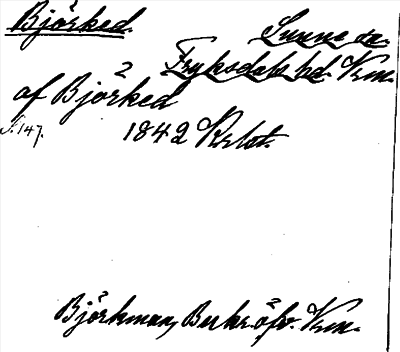 Björked.
Sunne sn.
Fryksdals hd. Vrm.
af Björked
S. 147.
1842 Krlst.
Björkman, Beskr. öfv. Vrm.